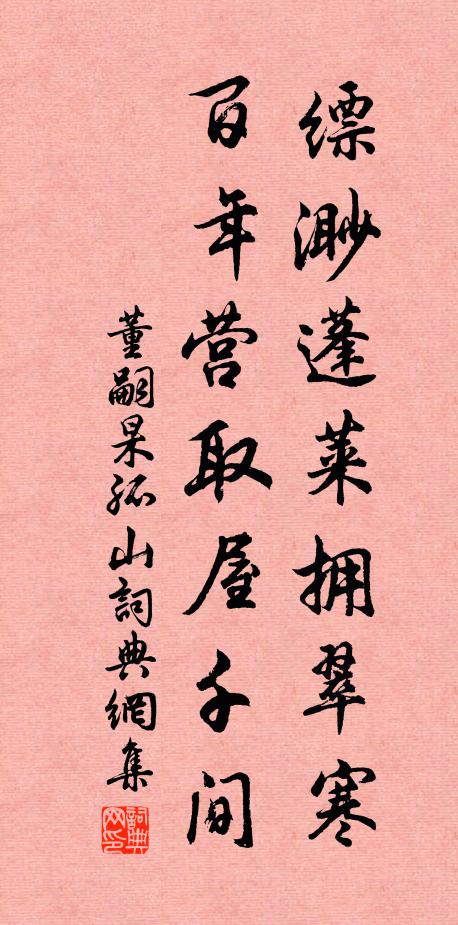 缥渺蓬莱拥翠寒
百年营取屋千间
董嗣杲孤山詞典網集
詞典网印